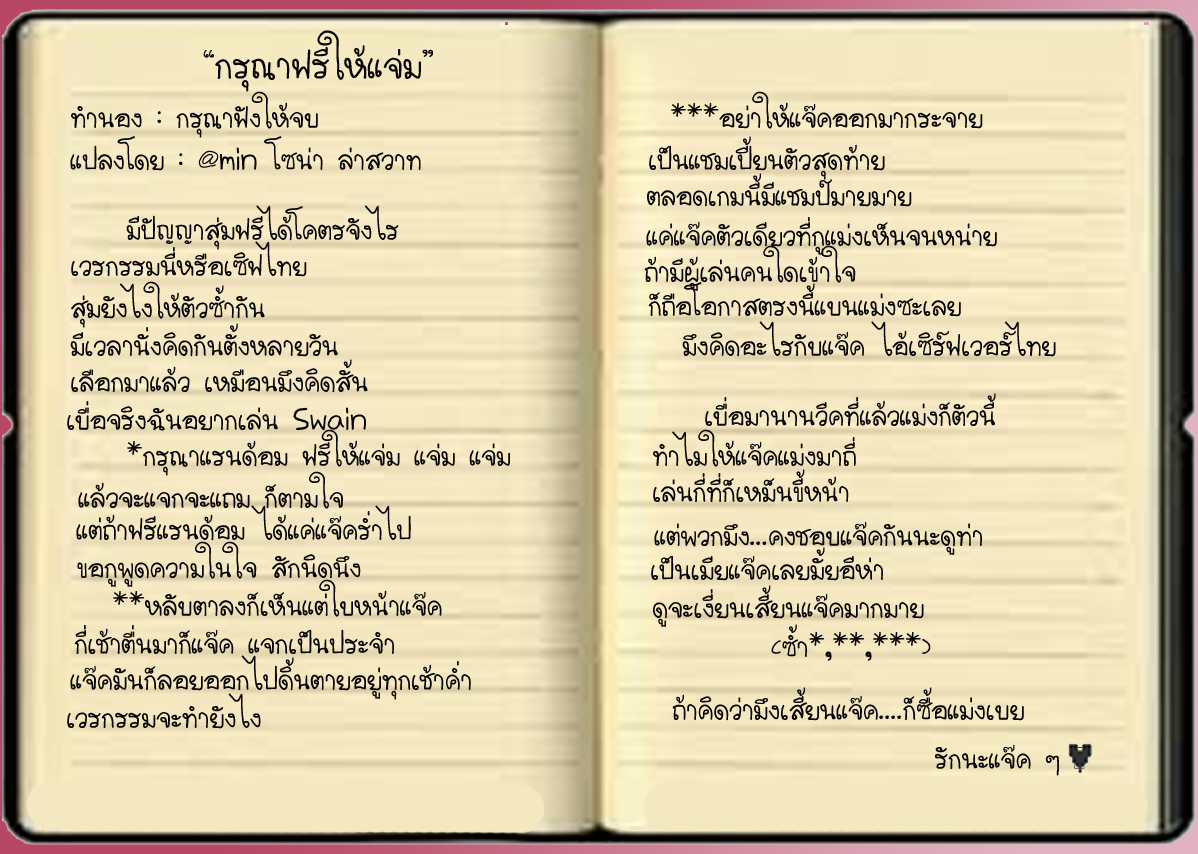 “กรุณาฟรีให้แจ่ม”
ทำนอง : กรุณาฟังให้จบ
แปลงโดย : @min โซน่า ล่าสวาท
มีปัญญาสุ่มฟรีได้โคตรจังไร
เวรกรรมนี่หรือเซิฟไทย
สุ่มยังไงให้ตัวซ้ำกัน
มีเวลานั่งคิดกันตั้งหลายวัน
เลือกมาแล้ว เหมือนมึงคิดสั้น
เบื่อจริงฉันอยากเล่น Swain
*กรุณาแรนด้อม ฟรีให้แจ่ม แจ่ม แจ่ม
แล้วจะแจกจะแถม ก็ตามใจ
แต่ถ้าฟรีแรนด้อม ได้แค่แจ๊คร่ำไป
ขอกูพูดความในใจ สักนิดนึง
**หลับตาลงก็เห็นแต่ใบหน้าแจ๊ค
กี่เช้าตื่นมาก็แจ๊ค แจกเป็นประจำ
แจ๊คมันก็ลอยออกไปดิ้นตายอยู่ทุกเช้าค่ำ
เวรกรรมจะทำยังไง
***อย่าให้แจ๊คออกมากระจาย
เป็นแชมเปี้ยนตัวสุดท้าย
ตลอดเกมนี้มีแชมป์มายมาย
แค่แจ๊คตัวเดียวที่กูแม่งเห็นจนหน่าย
ถ้ามีผู้เล่นคนใดเข้าใจ
ก็ถือโอกาสตรงนี้แบนแม่งซะเลย
มึงคิดอะไรกับแจ๊ค ไอ้เซิร์ฟเวอร์ไทย
เบื่อมานานวีคที่แล้วแม่งก็ตัวนี้
ทำไมให้แจ๊คแม่งมาถี่
เล่นกี่ที่ก็เหม็นขี้หน้า
แต่พวกมึง...คงชอบแจ๊คกันนะดูท่า
เป็นเมียแจ๊คเลยมั้ยอีห่า
ดูจะเงี่ยนเสี้ยนแจ๊คมากมาย
(ซ้ำ*,**,***)
ถ้าคิดว่ามึงเสี้ยนแจ๊ค....ก็ซื้อแม่งเบย
รักนะแจ๊ค ๆ